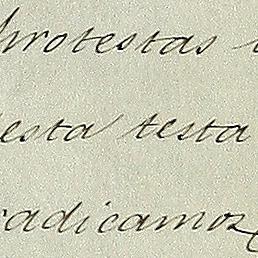 protestas
esta testa
radicamos